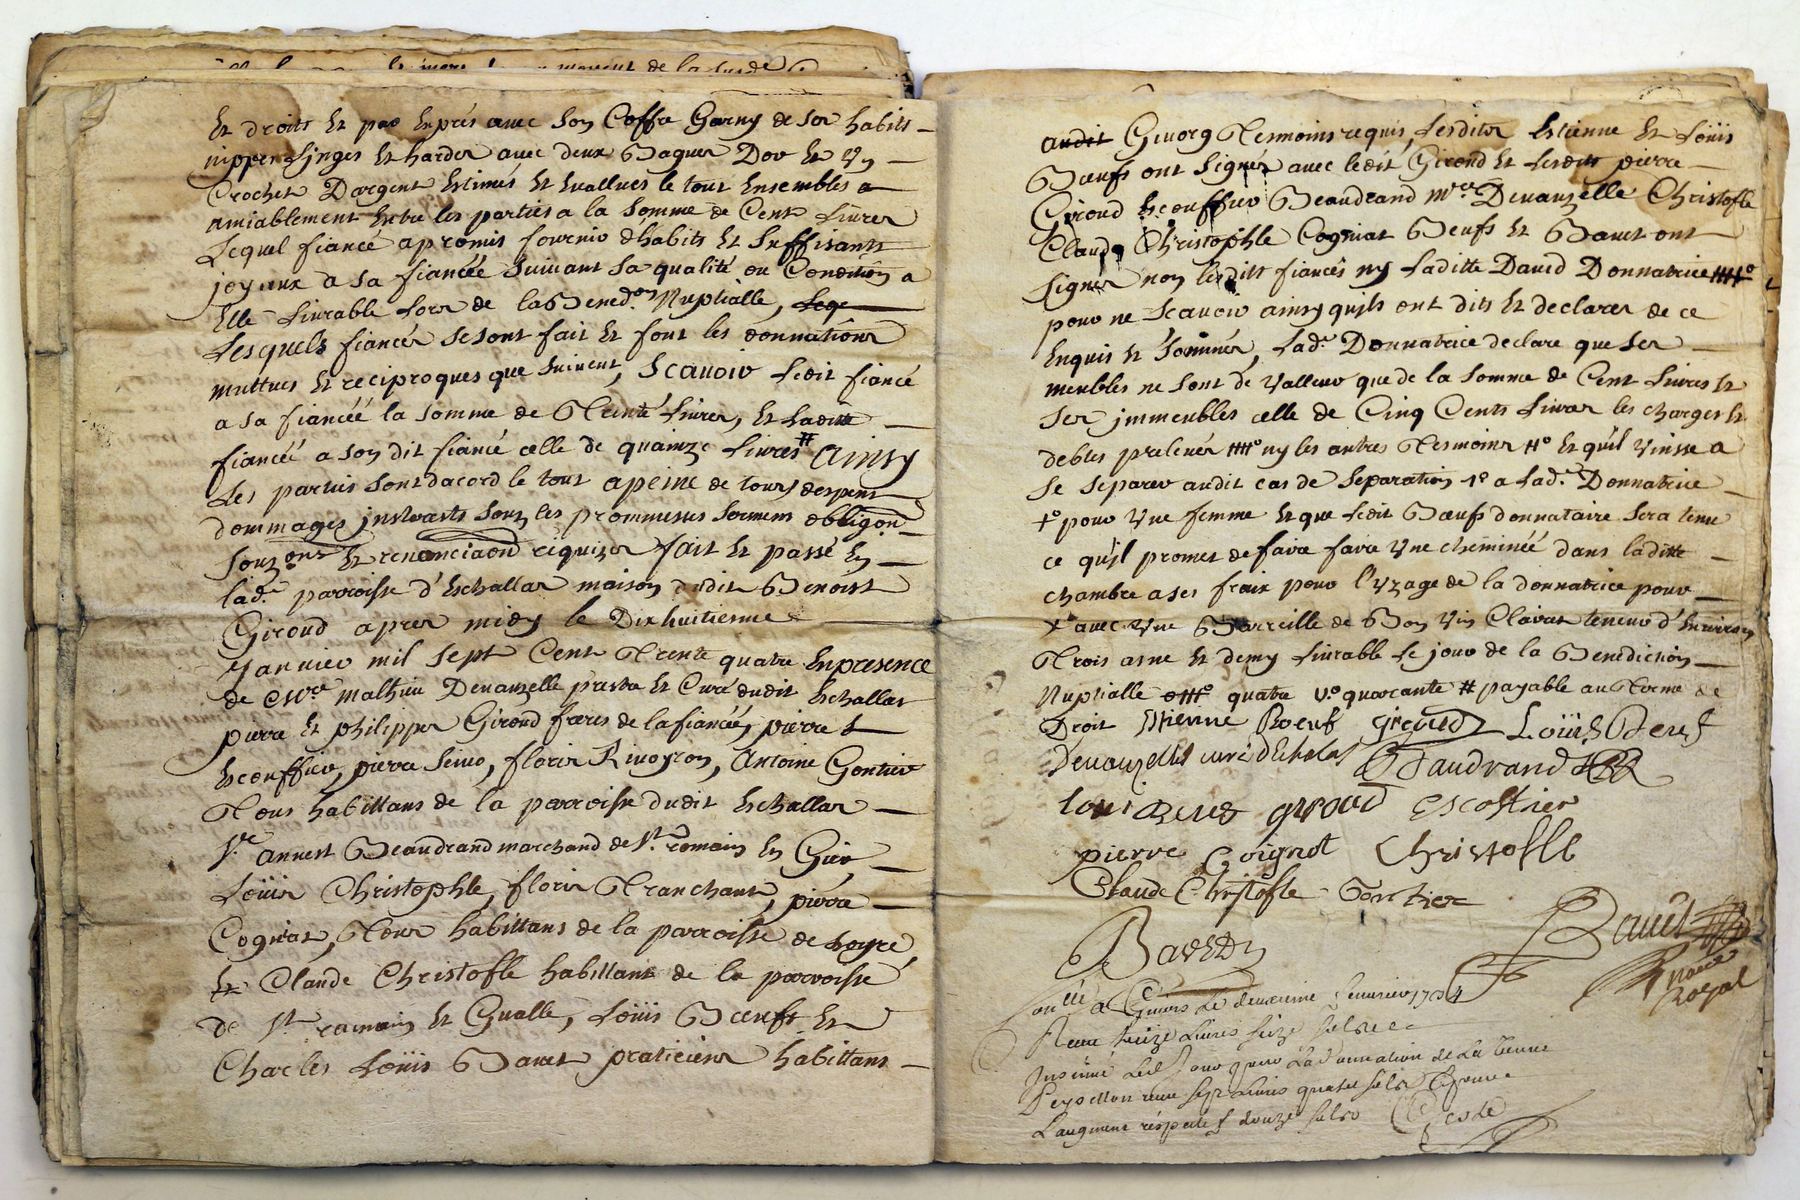 Et droits Et par Exprés avec son Coffre Garny de ses habits
nippes Linges Et hardes avec deux Bagues Dor Et Un
Crochet Dargent Estimés Et Evallues le tout Ensembles a
amiablement Entre les parties a la somme de Cent Livres
Lequel fiancé a promis fournir d'habits Et suffisants
joyaux a sa fiancéé suivant sa qualité ou Condition a
Elle Livrable lors de la Bened.on Nuptialle,
Lesquels fiancés se sont fait Et font les donnations
muttues Et reciproques que suivent, Scavoir Ledit fiancé
a sa fiancéé la somme de Trente Livres, Et Laditte
fiancéé a son dit fiancé celle de quainze Livres # Ainsy
Les parties sont dacord le tout a peine de tous despens
dommages jnterests sous les prommesses sermens obligon
sous.ons Et renonciaon requises fait Et passé En
lad.e parroisse d'Eschallas maison dudit Benoist
Giroud apres midy le Dixhuitienme
Janvier mil sept Cent Trente quatre En presence
de M.re Mathieu Devauzelle prestre Et Curé dudit Eschallas
pierre Et philippes Giroud freres de la fiancéé, pierre
Escouffier, pierre Seive, floris Rivoyron, Antoine Gontier
Tous habittans de la parroisse dudit Eschallas
S.r annest Beaudrand marchand de St. romain En Gier
Loüis Christophle, floris Tranchant, pierre
Cogniat, Tous habittans de la parroisse de
Et Claude Christofle habittant de la parroisse
de St. romain Et Gualle, Loüis Bœufs Et
Charles Loüis Bavet praticiens habittans
audit Givors Tesmoins requis, Lesdits Estienne Et Loüis
Bœufs ont signes avec ledit Giroud Et Lesdits pierre
Giroud Escouffier Beaudrand M.re Devauzelle Christofle
Claude Christophle Cogniat Bœufs Et Bavet ont
signes non lesdits fiancés ny Laditte David Donnatrice
pour ne Scavoir ainsy quils ont dits Et declares de ce
Enquis Et sommés, Lad.e Donnatrice declare que ses
meubles ne sont de Valleur que de la somme de Cent Livres Et
ses jmmeubles celle de Cinq Cents Livres les charges Et
debtes prelevés ny les autres Tesmoins Et quil vinsse a
se separer audit cas de separation a Lad.e Donnatrice
pour Une femme Et que ledit Bœufs donnataire sera tenu
ce quil promet de faire faire Une cheminéé dans laditte
chambre a ses fraix pour l'Uzage de la donnatrice pour
avec Une Barreille de Bon Vin Clairet teneur d'Environ
Trois asne Et demy Livrable le jour de la Benediction
Nuptialle quatre quarante # payable au Terme de
Droit Estienne Boeuf giroud Loüis Beuf
Devauzelles curé dEchalas Baudrand
Louis giroud escoffier
pierre Coignot Christofle
Claude Christofle Gontier
Bavet
Notaire
Royal
Con.llé a Givors Le deuxieme fevrier 1734
Reçu treize Livres seize sols
Insinué Led. Jour pour La Donnation de La
reçu sept Livres quatre sols
Laugment respectif douze sols